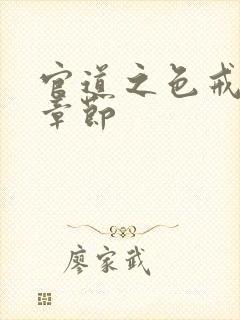 官道之色戒
章节
廖家武